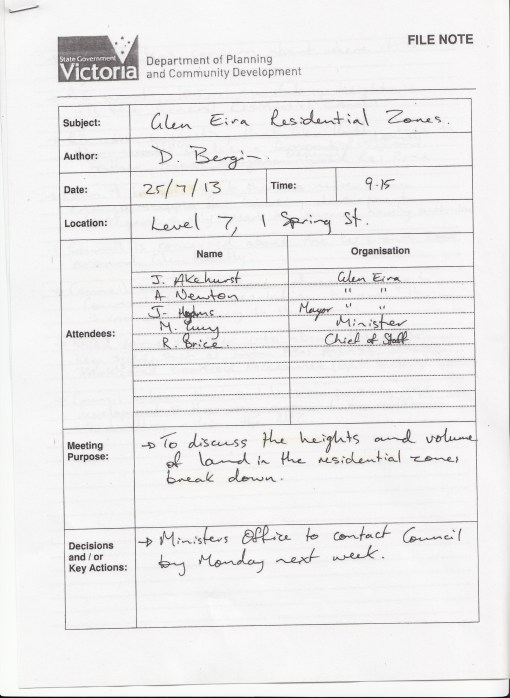 FILE NOTE
State Government
Victoria
Department of Planning
and Community Development
Subject: Glen Eira Residential Zones.
Author: D. Bergin.
Date: 25/7/13 Time: 9.15
Location: Level 7, 1 Spring St.
Attendees:
Name Organisation
J. Akehurst Glen Eira
A Newton " "
J. Mayor " "
M. Guy Minister
R. Brice. Chief of Staff
Meeting
Purpose:
→ To discuss the heights and volume
of land in the residential zones
break down.
Decisions
and / or
Key Actions:
→ Ministers Office to contact Council
by Monday next week.